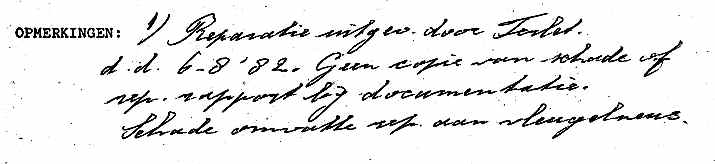 OPMERKINGEN: 1) Reparatie uitgev. door Terlet.
d.d. 6-8'82. Geen copie van schade of
rep. rapport bij documentatie.
Schade omvatte rep. aan vleugelneus.